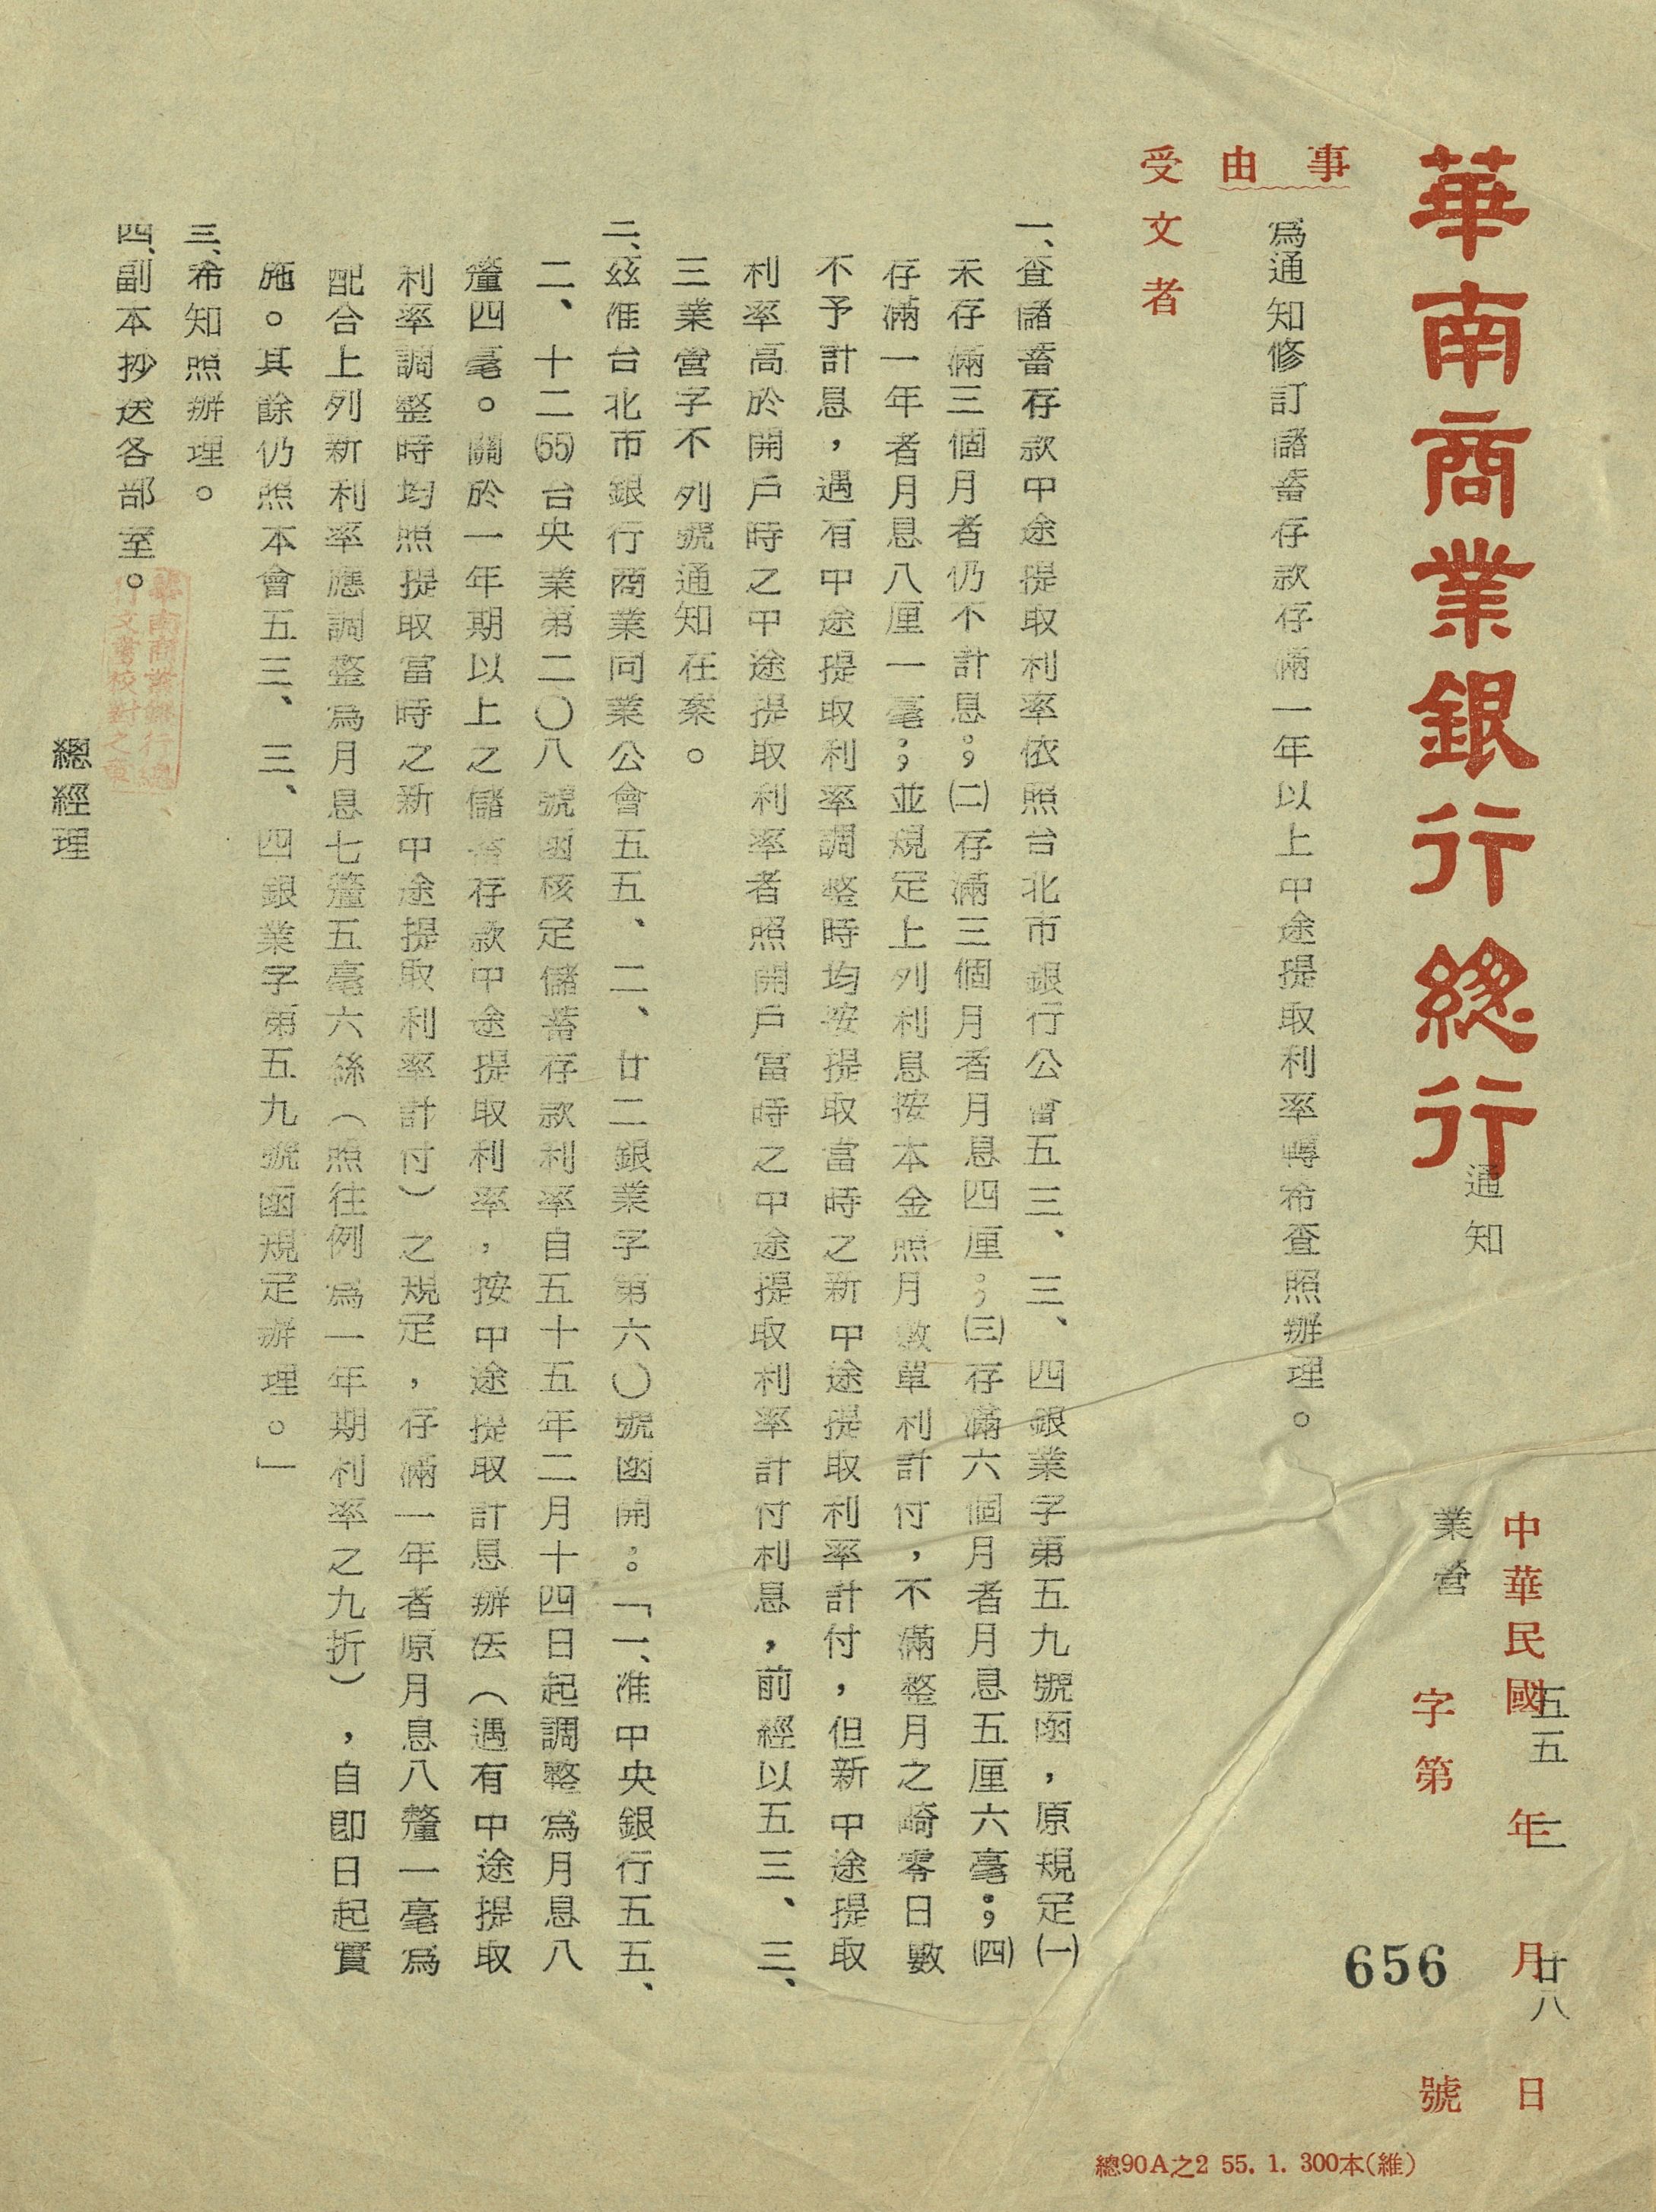 華南商業銀行總行
通知
中華民國五五年二月廿八日
業營字第656號
事由
為通知修訂儲蓄存款存滿一年以上中途提取利率轉布查照辦理。
受文者
一、查儲蓄存款中途提取利率依照台北市銀行公會五三、三、四銀業字第五九號函，原規定㈠
未存滿三個月者仍不計息；㈡存滿三個月者月息四厘；㈢存滿六個月者月息五厘六毫；㈣
存滿一年者月息八厘一毫；並規定上列利息按本金照月數單利計付，不滿整月之崎零日數
不予計息，遇有中途提取利率調整時均按提取當時之新中途提取利率計付，但新中途提取
利率高於開戶時之中途提取利率者照開戶當時之中途提取利率計付利息，前經以五三、三、
三業營字不列號通知在案。
二、茲准台北市銀行商業同業公會五五、二、廿二銀業字第六〇號函開：「一、准中央銀行五五、
二、十二(55)台央業第二〇八號函核定儲蓄存款利率自五十五年二月十四日起調整為月息八
釐四毫。關於一年期以上之儲蓄存款中途提取利率，按中途提取計息辦法（遇有中途提取
利率調整時均照提取當時之新中途提取利率計付）之規定，存滿一年者原月息八釐一毫為
配合上列新利率應調整為月息七釐五毫六絲（照往例為一年期利率之九折），自即日起實
施。其餘仍照本會五三、三、四銀業字第五九號函規定辦理。」
三、布知照辦理。
四、副本抄送各部室。
華南商業銀行總
行文書校對之章
總經理
總90A之2 55. 1. 300本(維)